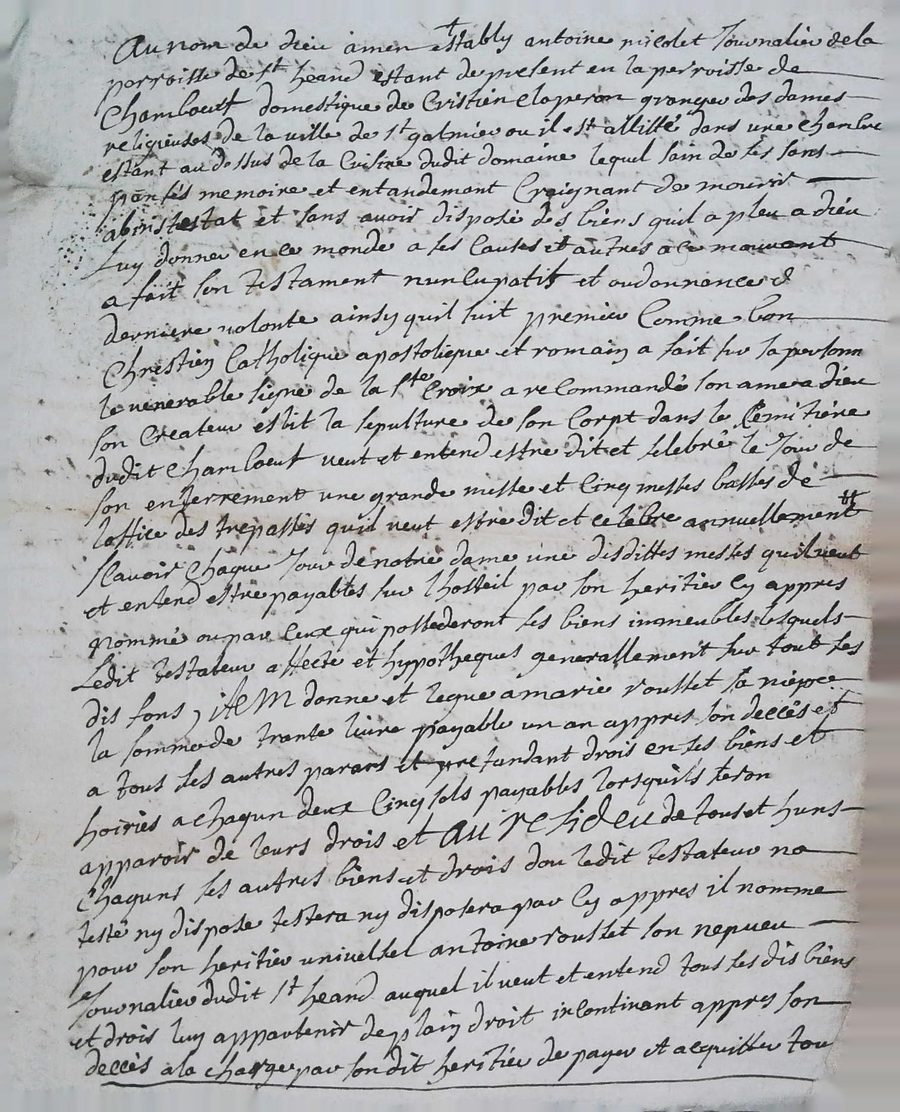 Au nom de dieu amen Estably antoine nicolet Journalier de la
parroisse de St heand estant de present en la parroisse de
Chambœuf domestique de Cristien Claperon granger des dames
religieuses de la ville de St galmier ou il est allitté dans une chambre
estant au dessus de la Cuisine dudit domaine lequel sain de ses sans
pansés memoire et entandement Craignant de mourir
abinstestat et sans avoir disposé des biens quil a pleu a dieu
Luy donner en ce monde a ses Causes et autres a ce mouvant
a fait son testament nuncupatif et oudonnance d
derniere volonte ainsy quil suit premier Comme bon
Christien Catholique apostolique et romain a fait sur sa personn
le venerable signe de la Ste Croix a recommandé son ame a dieu
son Createur eslit la sepulture de son Corpt dans le Cemitiére
dudit Chambœuf veut et entend estre dit et selebré le Jour de
son enterrement une grande messe et Cinq messes basses de
loffice des trepassés quil veut estre dit et celebre annuellement
scavoir Chaque Jour de notre dame une disdittes messes quil veut
et entend estre payables sur lhosteil par son heritier Cy appres
nommé ou par Ceux qui possederont ses biens immeubles lesquels
Ledit testateur affecte et hypotheques generallement sur tout ses
dis fons, itEM donne et legue a marie rousset sa niepce
la somme de trante livre payable un an appres son deccès et
a tous ses autres parans et pretandant drois en ses biens et
hoiries a chaqun deux Cinq sols payables lorsquils feron
apparoir de leurs drois et AU resideu de tous et huns
Chaquns ses autres biens et drois dou ledit testateur na
testé ny dispose testera ny disposera par Cy appres il nomme
pour son heritier univelsel antoine rousset son nepveu
Journalier dudit St heand auquel il veut et entend tous ses dis biens
et drois luy appartenir de plain droit incontinant appres son
deccès a la charge par son dit heritier de payer et acquitter tou